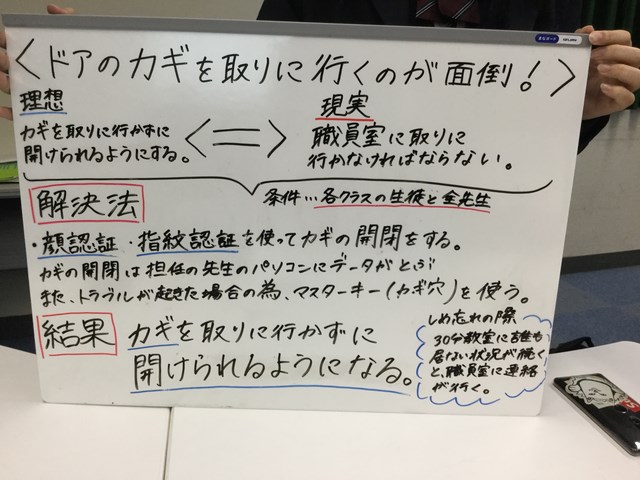 ＜ドアのカギを取りに行くのが面倒！＞
理想
カギを取りに行かずに
開けられるようにする。
⇔
現実
職員室に取りに
行かなければならない。
条件…各クラスの生徒と全先生
解決法
・顔認証・指紋認証を使ってカギの開閉をする。
カギの開閉は担任の先生のパソコンにデータがとぶ
また、トラブルが起きた場合の為、マスターキー(カギ穴)を使う。
結果
カギを取りに行かずに
開けられるようになる。
しめ忘れの際
30分教室に誰も
居ない状況が続く
と、職員室に連絡
が行く。